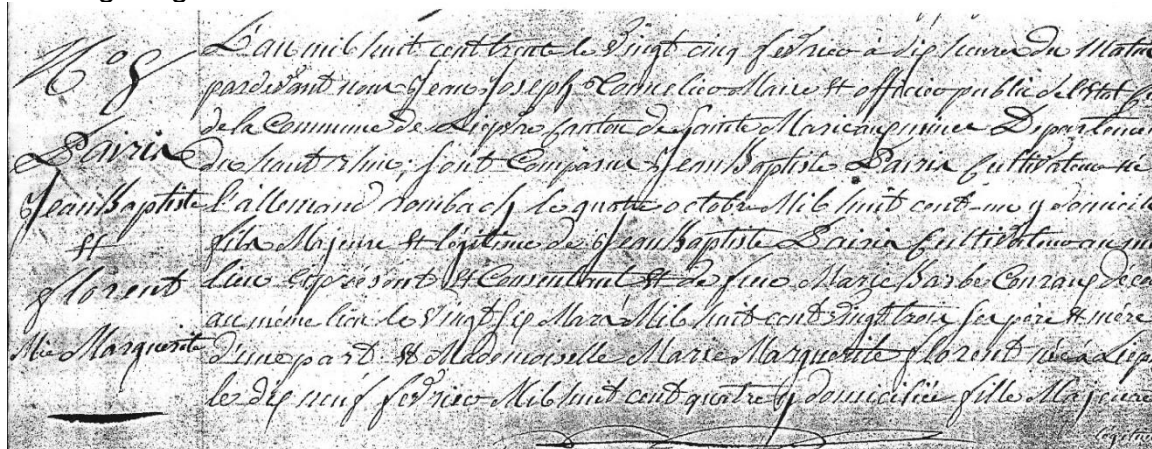 N.o 8
Pairis
Jean Baptiste
et
florent
Mie Marguerite
L'an mil huit cent trente le vingt cinq fevrier à dix heures du Matin
pardevant nous Jean Joseph Maire et officier public de l'Etat
de la Commune de Liepvre Canton de Sainte Marie aux mines Departement
du haut rhin, sont Comparus Jean Baptiste Pairis Cultivateur né
l'allemand rombach le quatre octobre Mil huit cent y
fils Majeure et légitime de Jean Baptiste Pairis Cultivateur au
lieu ici présent et Consentant et de feue Marie Barbe
au même lieu le vingt six Mars Mil huit cent vingt trois ses père et mère
d'une part. et Mademoiselle Marie Marguerite florent née à
le dix neuf fevrier Mil huit cent quatre y domiciliée fille Majeure